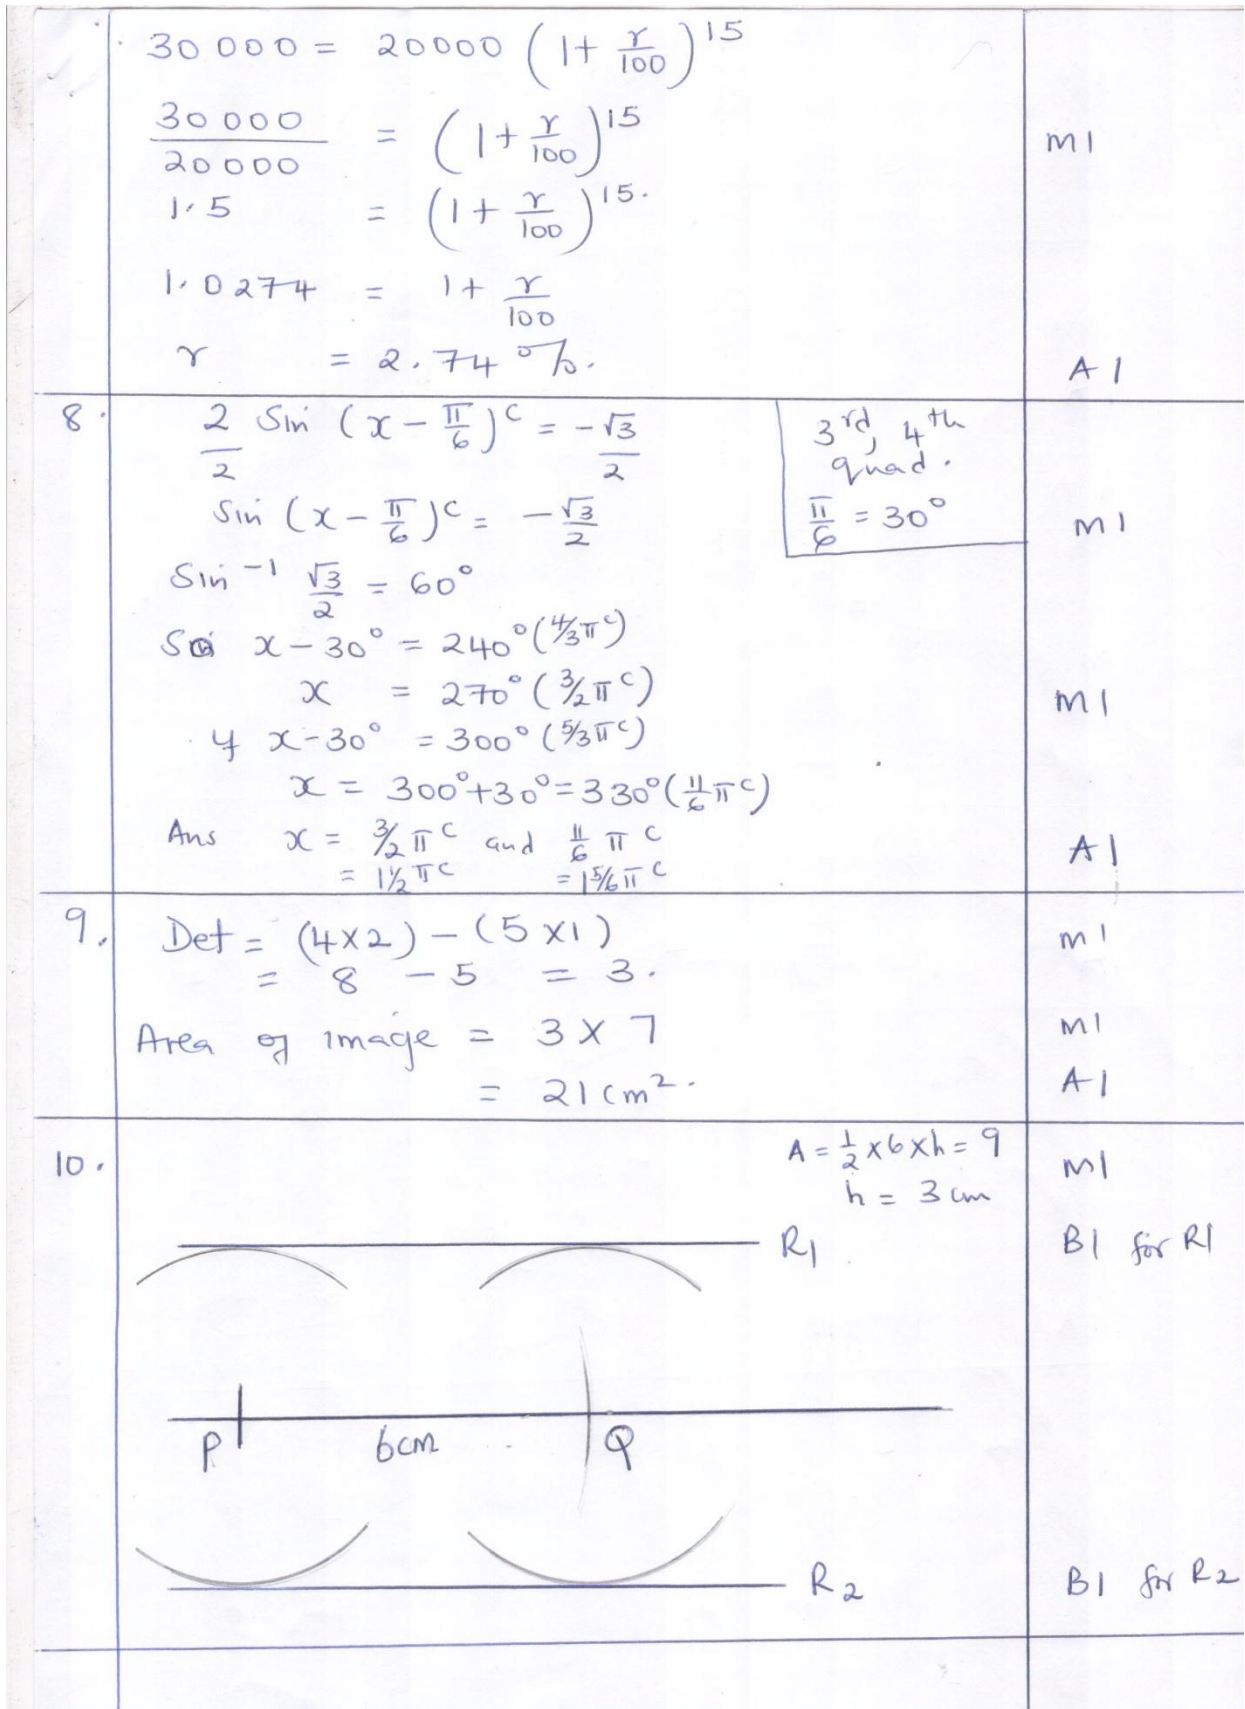 30 000 = 20000 (1 + r/100)^15
30 000/20000 = (1 + r/100)^15 M1
1.5 = (1 + r/100)^15.
1.0274 = 1 + r/100
r = 2.74 %. A1
8. 2/2 Sin (x - π/6)^c = -√3/2
3rd, 4th
quad.
π/6 = 30°
Sin (x - π/6)^c = -√3/2 M1
Sin^-1 √3/2 = 60°
So x - 30° = 240° (4/3π^c)
x = 270° (3/2π^c) M1
if x - 30° = 300° (5/3π^c)
x = 300° + 30° = 330° (11/6 π^c)
Ans x = 3/2 π^c and 11/6 π^c A1
= 1 1/2 π^c = 1 5/6 π^c
9. Det = (4 x 2) - (5 x 1) M1
= 8 - 5 = 3.
Area of image = 3 x 7 M1
= 21 cm². A1
10. A = 1/2 x 6 x h = 9 M1
h = 3 cm
R1 B1 for R1
P 6cm Q
R2 B1 for R2